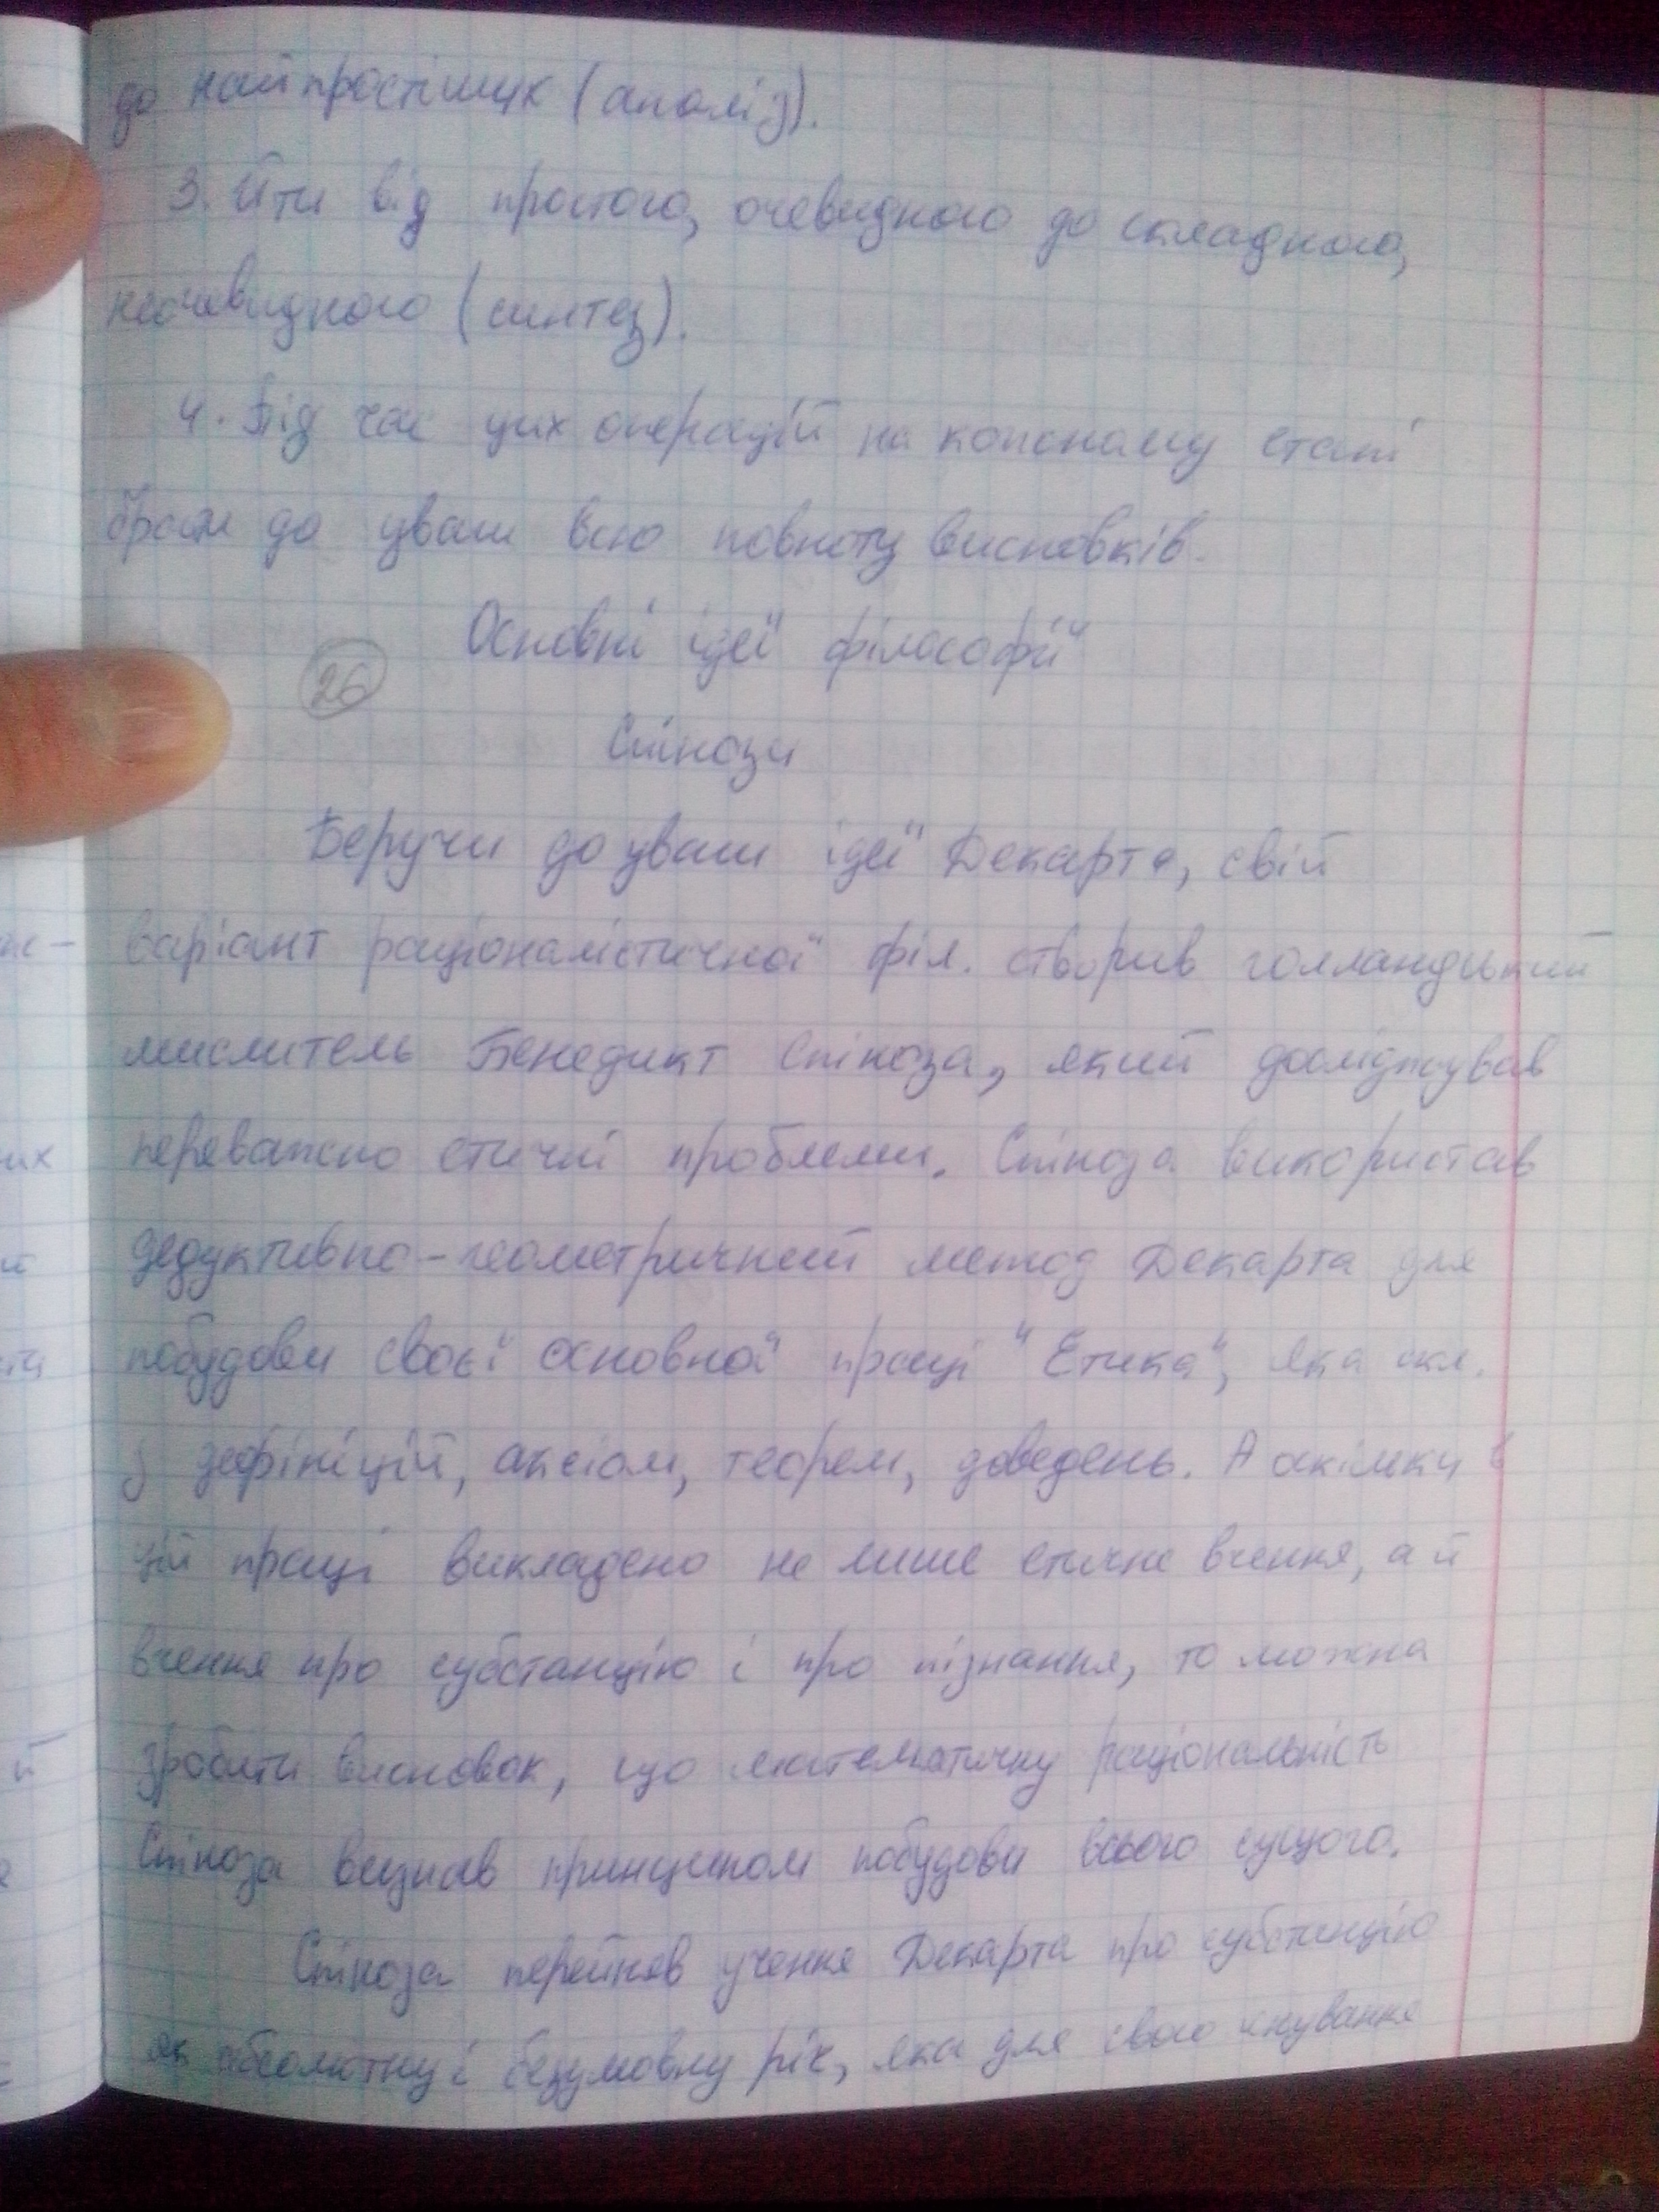 до найпростіших (аналіз).
3. Йти від простого, очевидного до складного,
неочевидного (синтез).
4. Під час цих операцій на кожному етапі
брати до уваги всю повноту висновків.
Основні ідеї філософії
26
Спінози
Беручи до уваги ідеї Декарта, свій
варіант раціоналістичної філ. створив голландський
мислитель Бенедикт Спіноза, який досліджував
переважно етичні проблеми. Спіноза використав
дедуктивно-геометричний метод Декарта для
побудови своєї основної праці "Етика", яка скл.
з дефініцій, аксіом, теорем, доведень. А оскільки в
цій праці викладено не лише етичне вчення, а й
вчення про субстанцію і про пізнання, то можна
зробити висновок, що математичну раціональність
Спіноза визнав принципом побудови всього сущого.
Спіноза перейняв учення Декарта про субстанцію
як абсолютну і безумовну річ, яка для свого існування